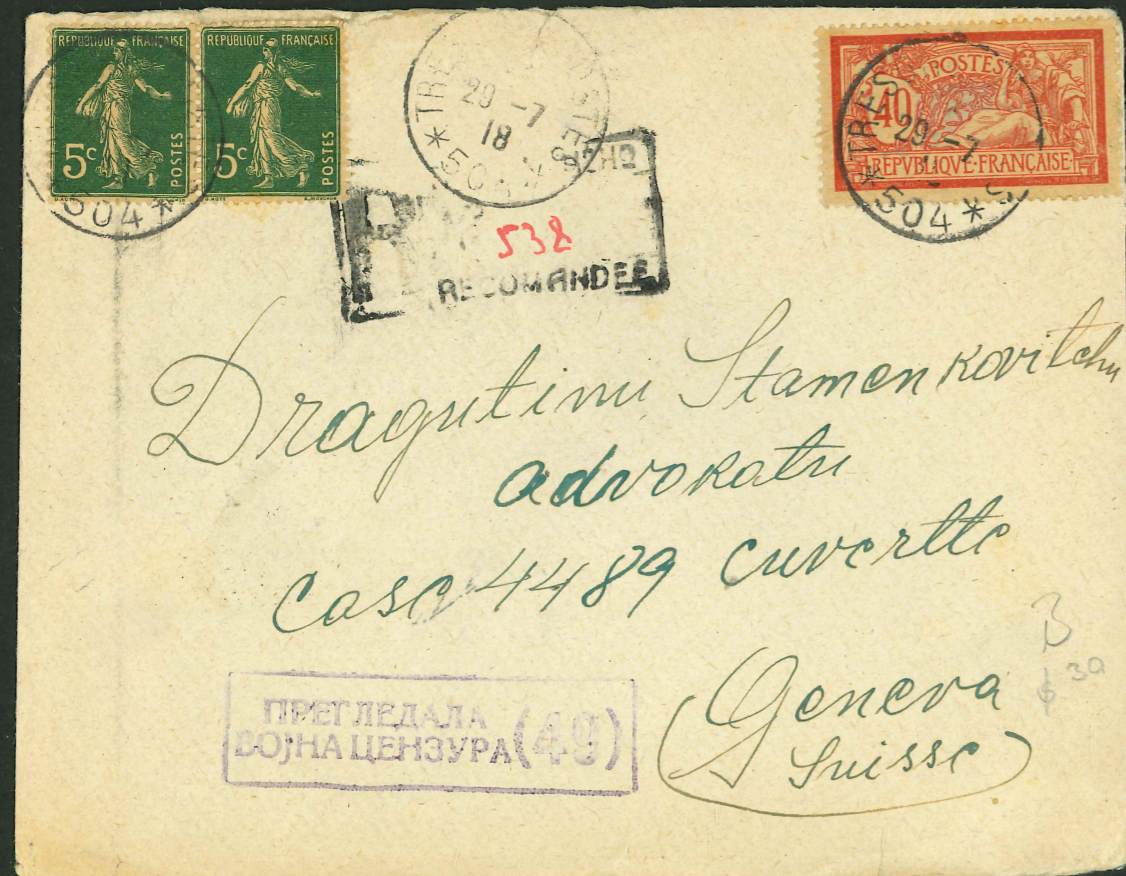 REPUBLIQUE FRANÇAISE
5c
POSTES
REPUBLIQUE FRANÇAISE
5c
POSTES
*504*
29 -7
18
*504*
POSTES
40
REPVBLIQVE·FRANÇAISE
29 -7
*504*
538
RECOMANDEE
Dragutinu Stamenkovitchu
advokatu
case 4489 cuvertte
Geneva
Suisse
ПРЕГЛЕДАЛА
ВОЈНА ЦЕНЗУРА (49)
B
$ 30